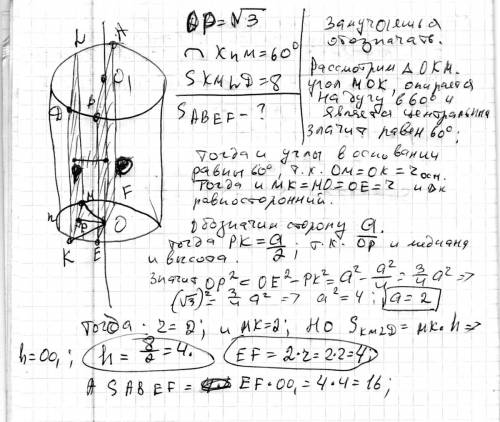 L A
OP=√3
∩ КпМ=60°
S KMLD=8
S ABEF - ?
Замучаешься
обозначать.
Рассмотрим Δ ОКМ.
угол МОК, опирается
на дугу в 60° и
является центральным
значит равен 60°;
O₁
D B
F
M
n P O
K E
Тогда и углы в основании
равны 60°, т.к. ОМ=ОК=r осн.
Тогда и МК=МО=ОЕ=r и
равносторонний.
Обозначим сторону a.
тогда PK=a/2; т.к. OP и медиана
и высота.
Значит OP²=OE²-PK²=a²-a²/4=3/4 a² =>
(√3)²=3/4 a² => a²=4; a=2
Тогда r=2; и МК=2; Но S KMLD=MK·h =>
h=OO₁; h=8/2=4. EF=2·r=2·2=4;
А S ABEF = EF·OO₁=4·4=16;